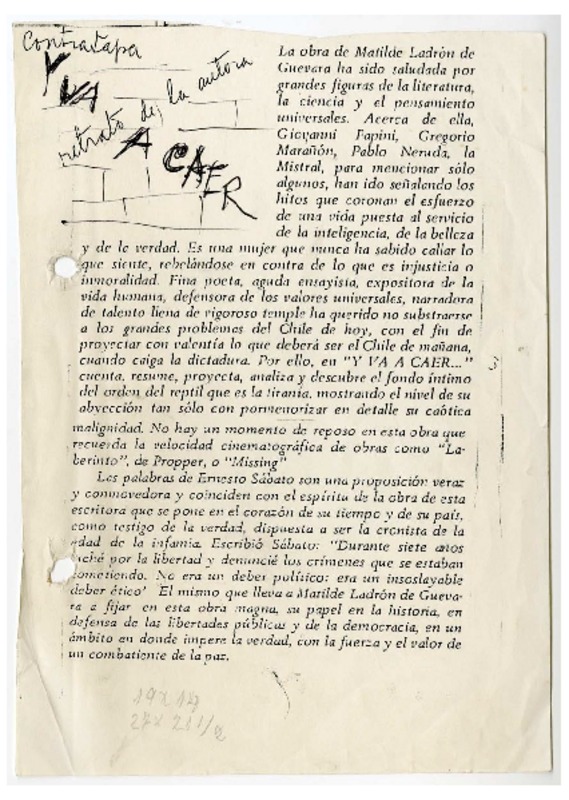 Contratapa
Y VA
retrato de la autora
A CAER
La obra de Matilde Ladrón de
Guevara ha sido saludada por
grandes figuras de la literatura,
la ciencia y el pensamiento
universales. Acerca de ella,
Giovanni Papini, Gregorio
Marañón, Pablo Neruda, la
Mistral, para mencionar sólo
algunos, han ido señalando los
hitos que coronan el esfuerzo
de una vida puesta al servicio
de la inteligencia, de la belleza
y de la verdad. Es una mujer que nunca ha sabido callar lo
que siente, rebelándose en contra de lo que es injusticia o
inmoralidad. Fina poeta, aguda ensayista, expositora de la
vida humana, defensora de los valores universales, narradora
de talento llena de vigoroso temple ha querido no substraerse
a los grandes problemas del Chile de hoy, con el fin de
proyectar con valentía lo que deberá ser el Chile de mañana,
cuando caiga la dictadura. Por ello, en "Y VA A CAER..."
cuenta, resume, proyecta, analiza y descubre el fondo íntimo
del orden del reptil que es la tiranía, mostrando el nivel de su
abyección tan sólo con pormenorizar en detalle su caótica
malignidad. No hay un momento de reposo en esta obra que
recuerda la velocidad cinematográfica de obras como "La-
berinto", de Propper, o "Missing"
Las palabras de Ernesto Sábato son una proposición veraz
y conmovedora y coinciden con el espíritu de la obra de esta
escritora que se pone en el corazón de su tiempo y de su país,
como testigo de la verdad, dispuesta a ser la cronista de la
edad de la infamia. Escribió Sábato: "Durante siete años
luché por la libertad y denuncié los crímenes que se estaban
cometiendo. No era un deber político: era un insoslayable
deber ético' El mismo que lleva a Matilde Ladrón de Gueva-
ra a fijar en esta obra magna, su papel en la historia, en
defensa de las libertades públicas y de la democracia, en un
ámbito en donde impere la verdad, con la fuerza y el valor de
un combatiente de la paz.
19 x 14
27 x 21 1/2